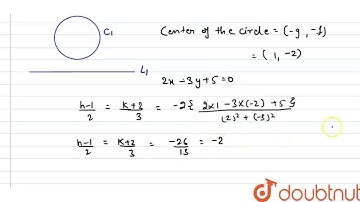 C₁
Center of the circle = (-g, -f)
= (1, -2)
L₁
2x - 3y + 5 = 0
h-1/2 = k+2/3 = -2{2x1 - 3x(-2) + 5}/(2)² + (-3)²
h-1/2 = k+2/3 = -26/13 = -2
doubtnut